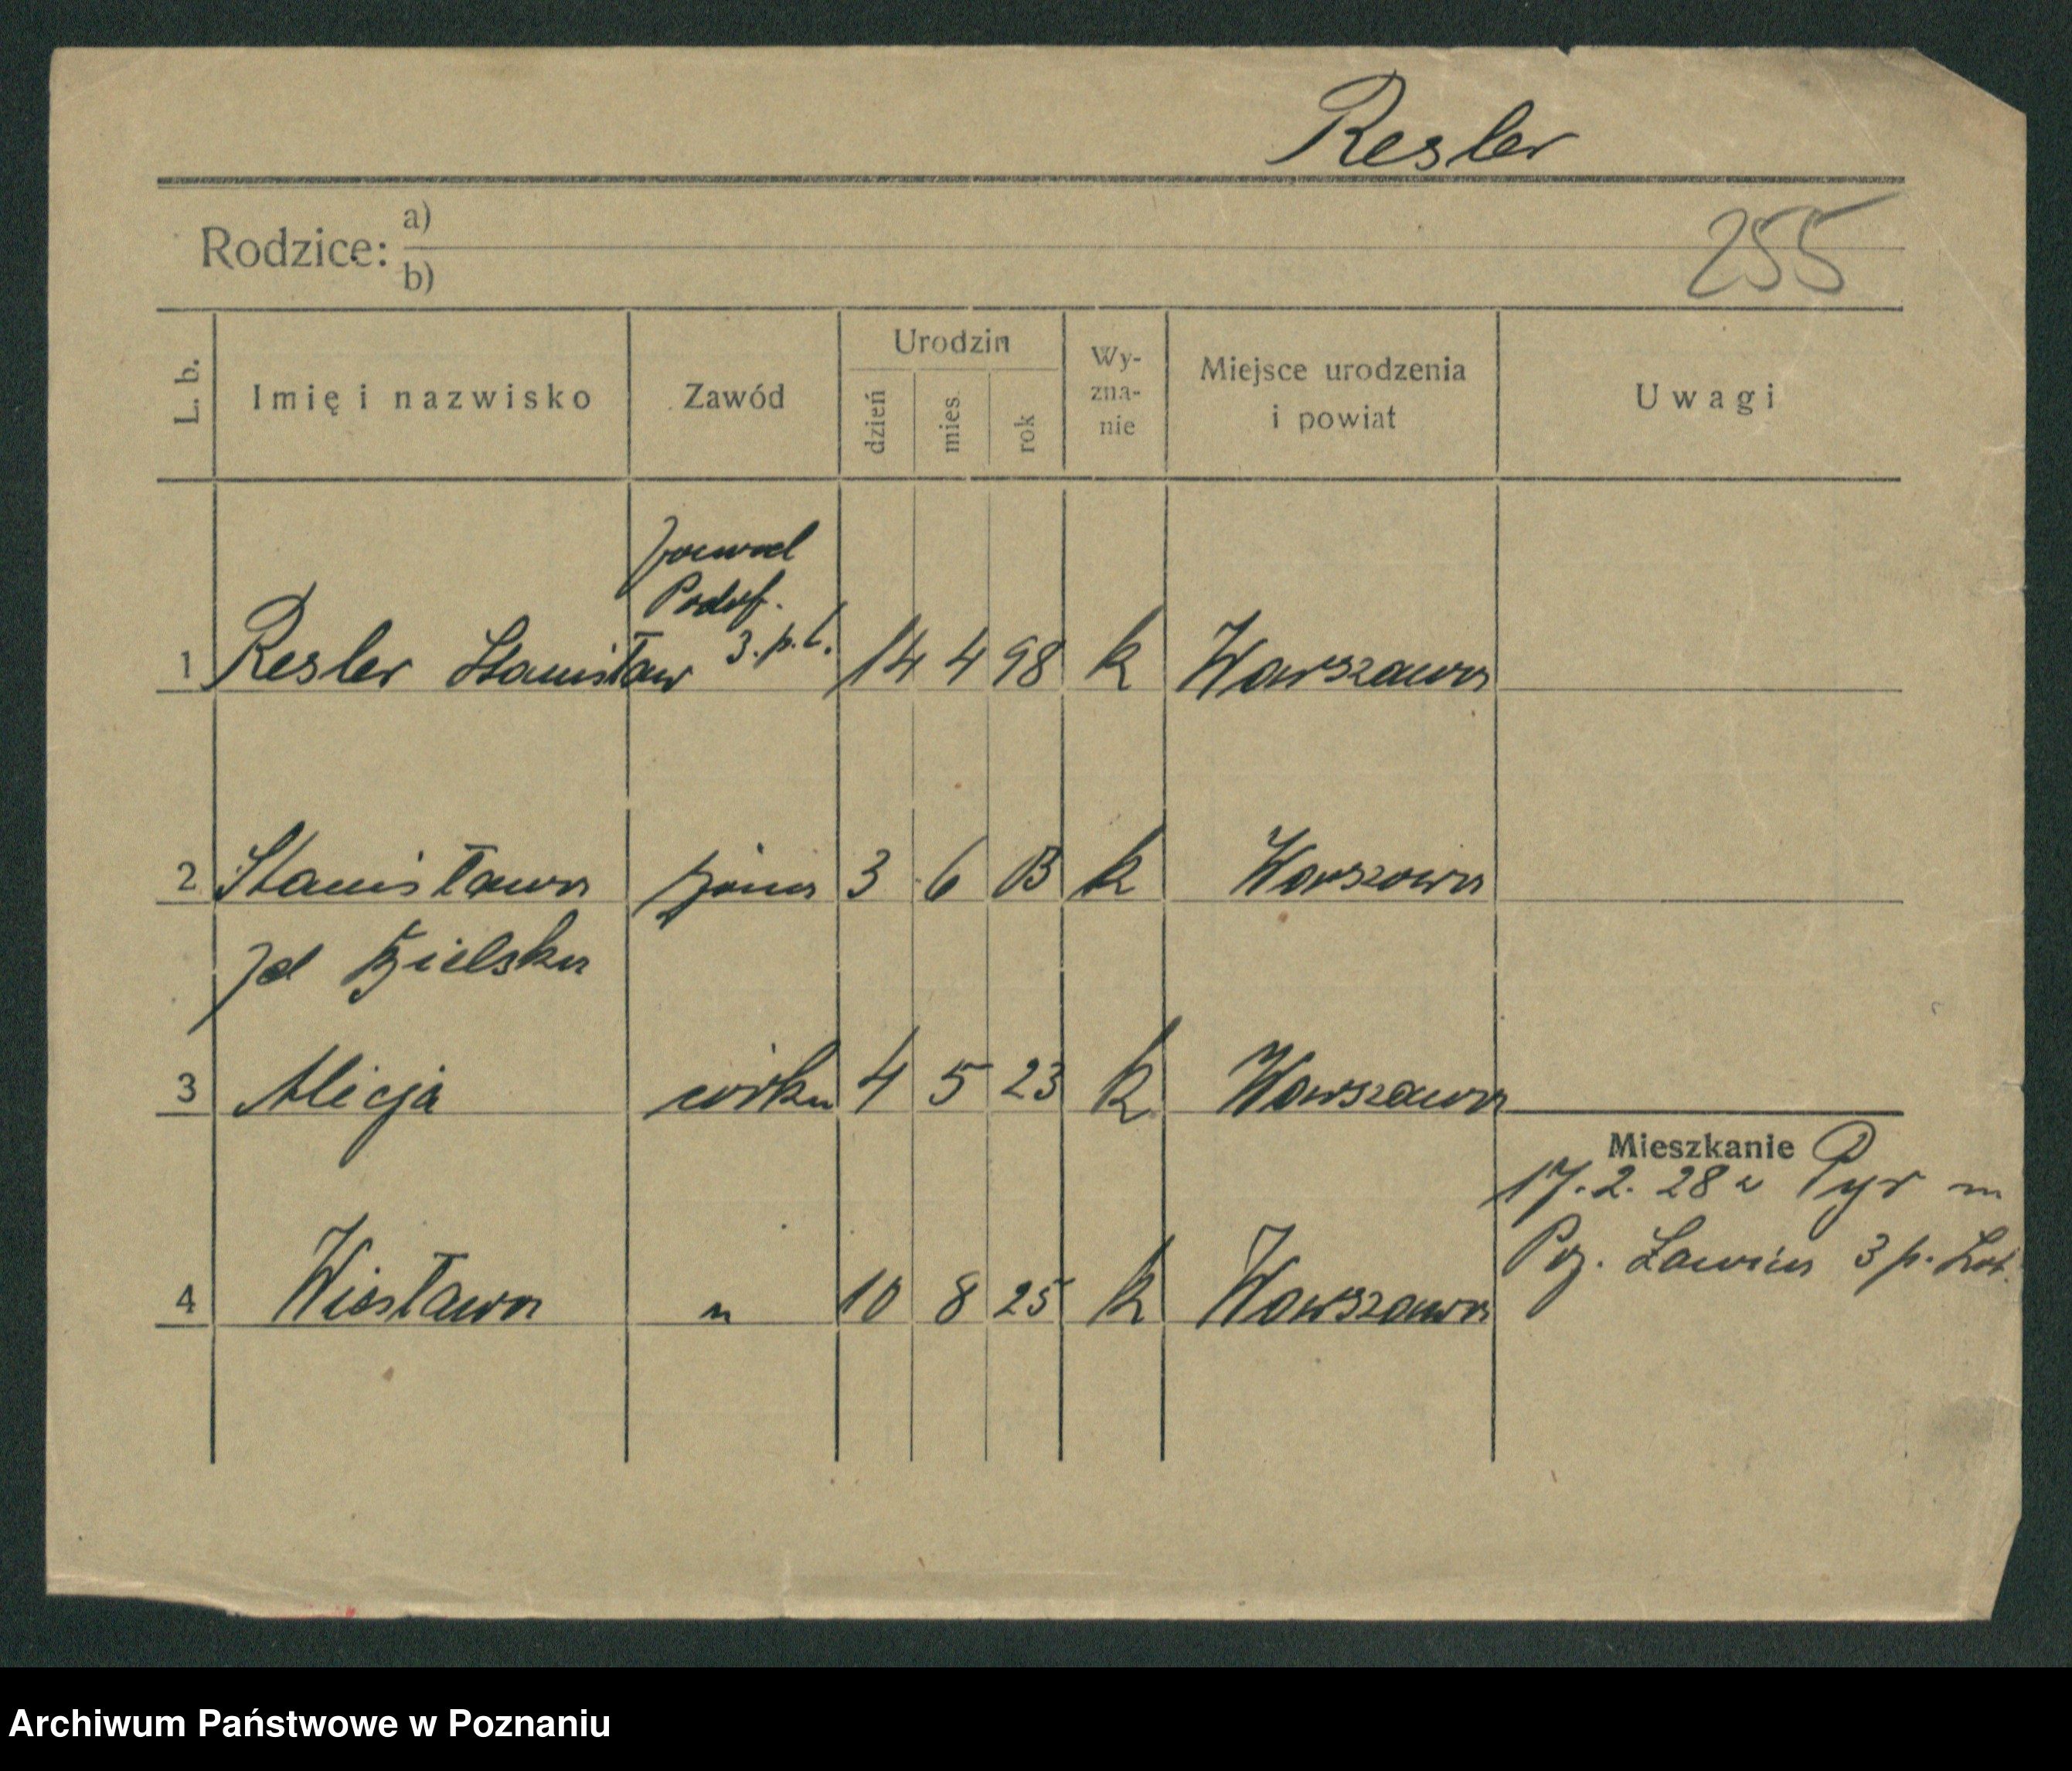 Resler
Rodzice: a)
b)
255
L. b. Imię i nazwisko Zawód Urodzin dzień mies. rok Wy-zna-nie Miejsce urodzenia i powiat Uwagi
Podof.
1 Resler Stanisław 3. p. l. 14 4 98 k Warszawa
2 Stanisława żona 3 6 03 k Warszawa
Bielska
3 Alicja córka 4 5 23 k Warszawa
Mieszkanie
17. 2. 28 z Pyr m
Poz. Ławica 3 p. Lot.
4 Wiesława " 10 8 25 k Warszawa
Archiwum Państwowe w Poznaniu